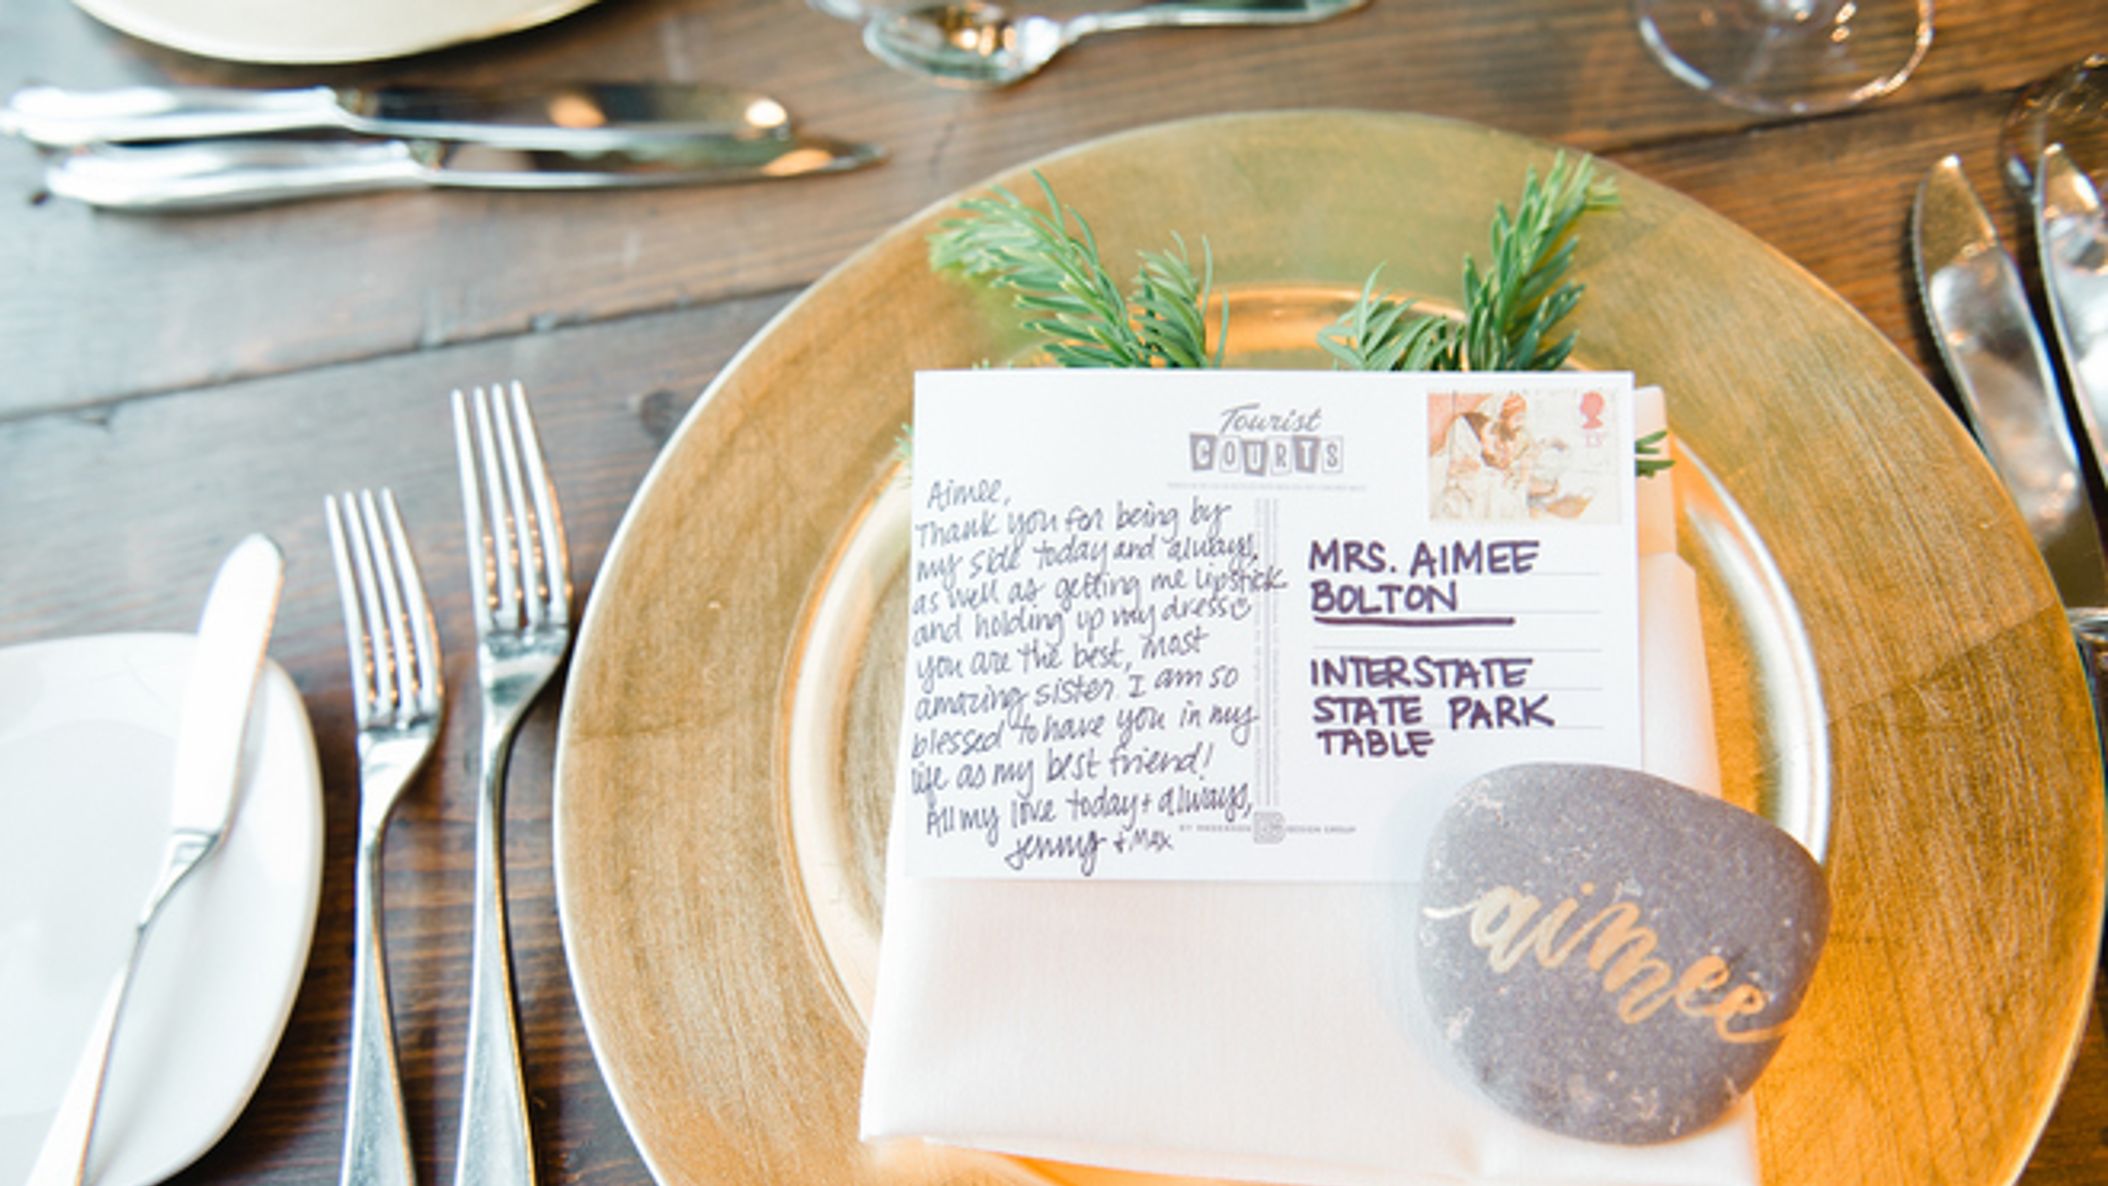 Tourist
COURTS
13P
Aimee,
Thank you for being by
my side today and always,
as well as getting me lipstick
and holding up my dress☺
you are the best, most
amazing sister I am so
blessed to have you in my
life as my best friend!
All my love today + always,
Jenny + Max
MRS. AIMEE
BOLTON
INTERSTATE
STATE PARK
TABLE
DESIGN GROUP
aimee